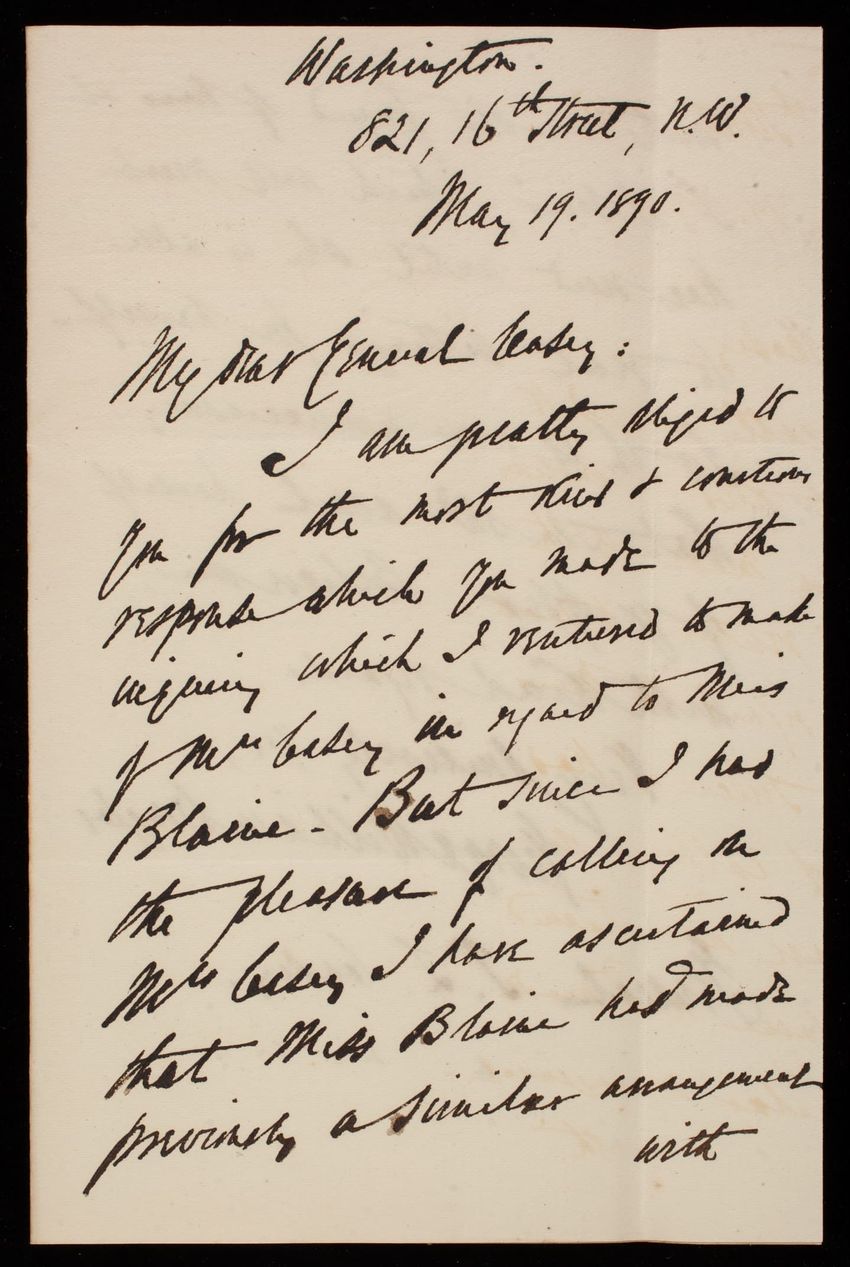 Washington.
821, 16th Street, N.W.
May 19. 1890.
My dear General Casey:
I am greatly obliged to
you for the most kind & courteous
response which you made to the
inquiry which I ventured to make
of Mrs Casey in regard to Miss
Blaine - But since I had
the pleasure of calling on
Mrs Casey I have ascertained
that Miss Blaine had made
previously a similar arrangement
with